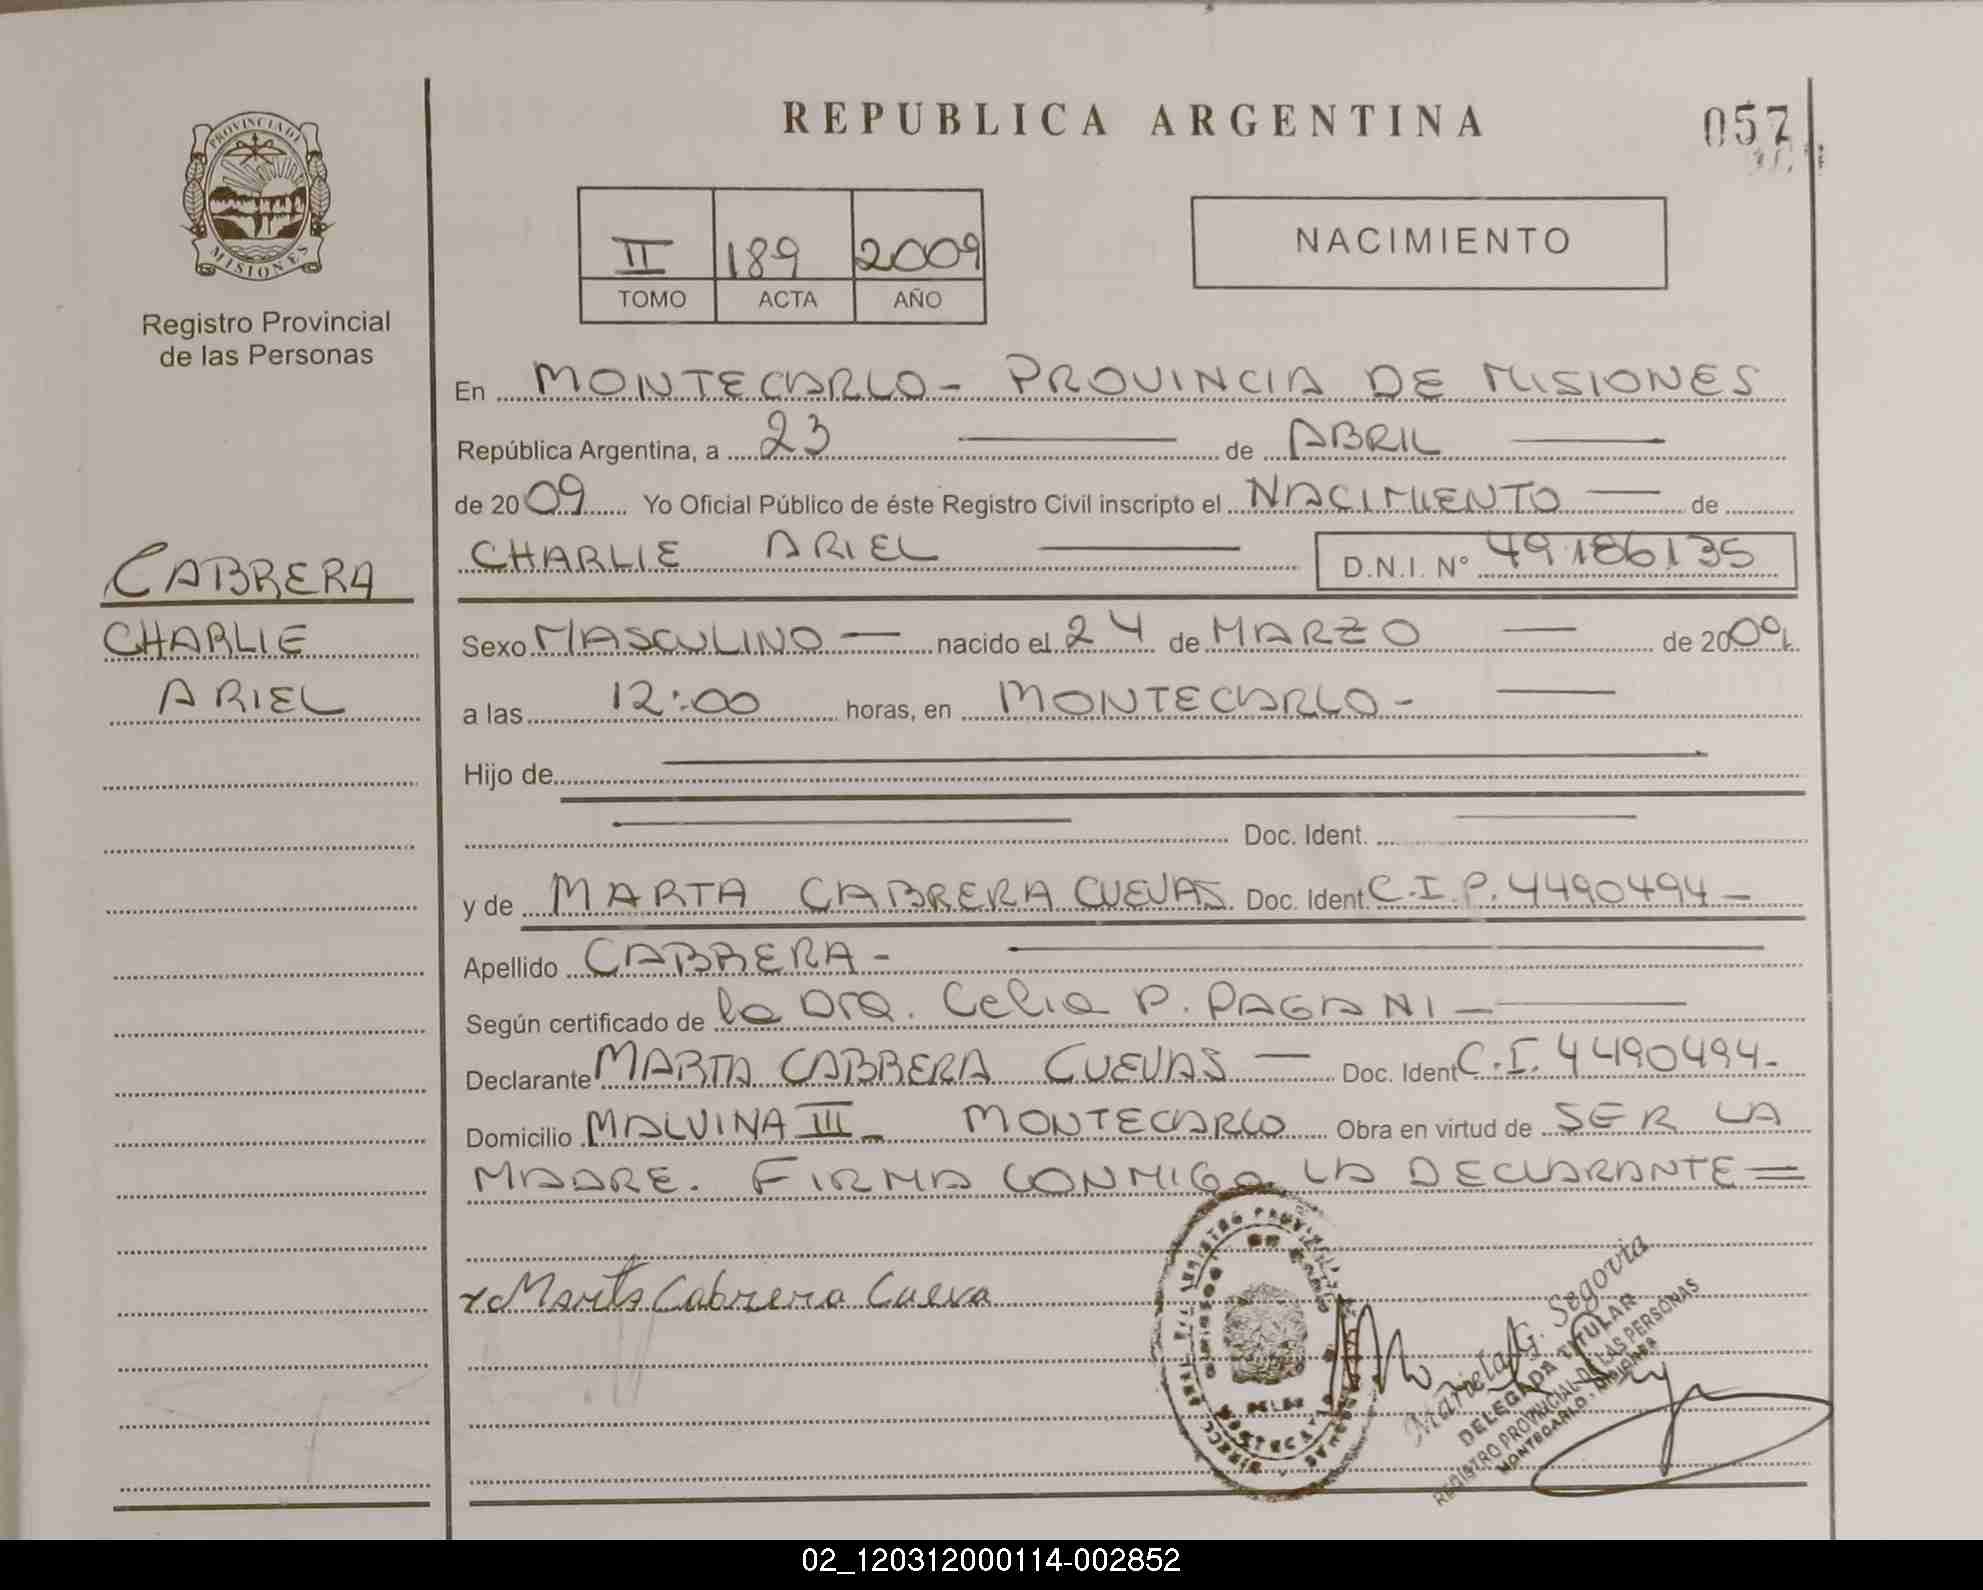 REPUBLICA ARGENTINA
057
PROVINCIA DE
MISIONES
Registro Provincial
de las Personas
II 189 2009
TOMO ACTA AÑO
NACIMIENTO
En MONTECARLO - PROVINCIA DE MISIONES
República Argentina, a 23 de ABRIL
de 2009 Yo Oficial Público de éste Registro Civil inscripto el NACIMIENTO de
CHARLIE ARIEL D.N.I. Nº 49.186.135
CABRERA
CHARLIE
ARIEL
Sexo MASCULINO nacido el 24 de MARZO de 2009.
a las 12:00 horas, en MONTECARLO -
Hijo de
Doc. Ident.
y de MARTA CABRERA CUEVAS Doc. Ident. C.I.P. 4490494 -
Apellido CABRERA -
Según certificado de la Dra. Celia P. PAGANI -
Declarante MARTA CABRERA CUEVAS - Doc. Ident C.I. 4490494 -
Domicilio MALVINA III - MONTECARLO Obra en virtud de SER LA
MADRE. FIRMA CONMIGO LA DECLARANTE =
x Marta Cabrera Cueva
Mariela G. Segovia
DELEGADA TITULAR
REGISTRO PROVINCIAL DE LAS PERSONAS
MONTECARLO - MISIONES
02_120312000114-002852